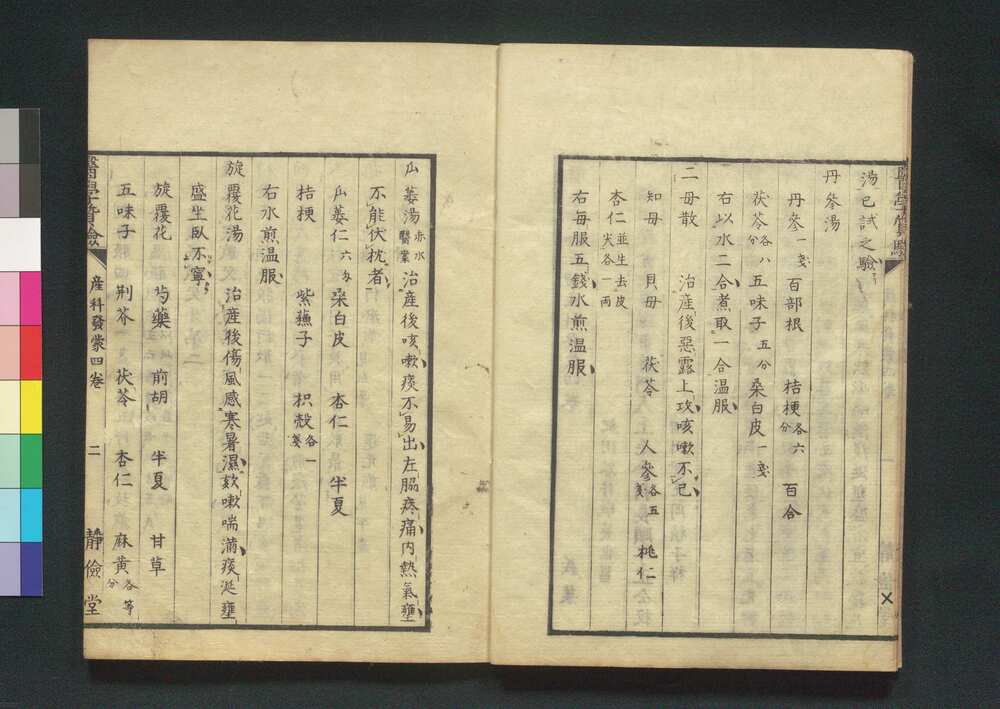 湯已試之驗
丹參湯
丹參一戔 百部根 桔梗各六分 百合
茯苓各八分 五味子五分 桑白皮一戔
右以水二合煮取一合温服
二母散 治產後惡露上攻咳嗽不已
知母 貝母 茯苓 人參各五戔 桃仁
杏仁並生去皮尖各一兩
右每服五錢水煎温服
瓜蔞湯赤水醫案 治產後咳嗽痰不易出左脇疼痛内熱氣壅
不能伏枕者
瓜蔞仁六匁 桑白皮 杏仁 半夏
桔梗 紫蘓子 枳殻各一戔
右水煎温服
旋覆花湯 治產後傷風感寒暑濕欬嗽喘滿痰涎壅
盛坐臥不寧
旋覆花 芍藥 前胡 半夏 甘草
五味子 荆芥 茯苓 杏仁 麻黄各等分
醫學質驗 產科發蒙四卷 二 靜儉堂